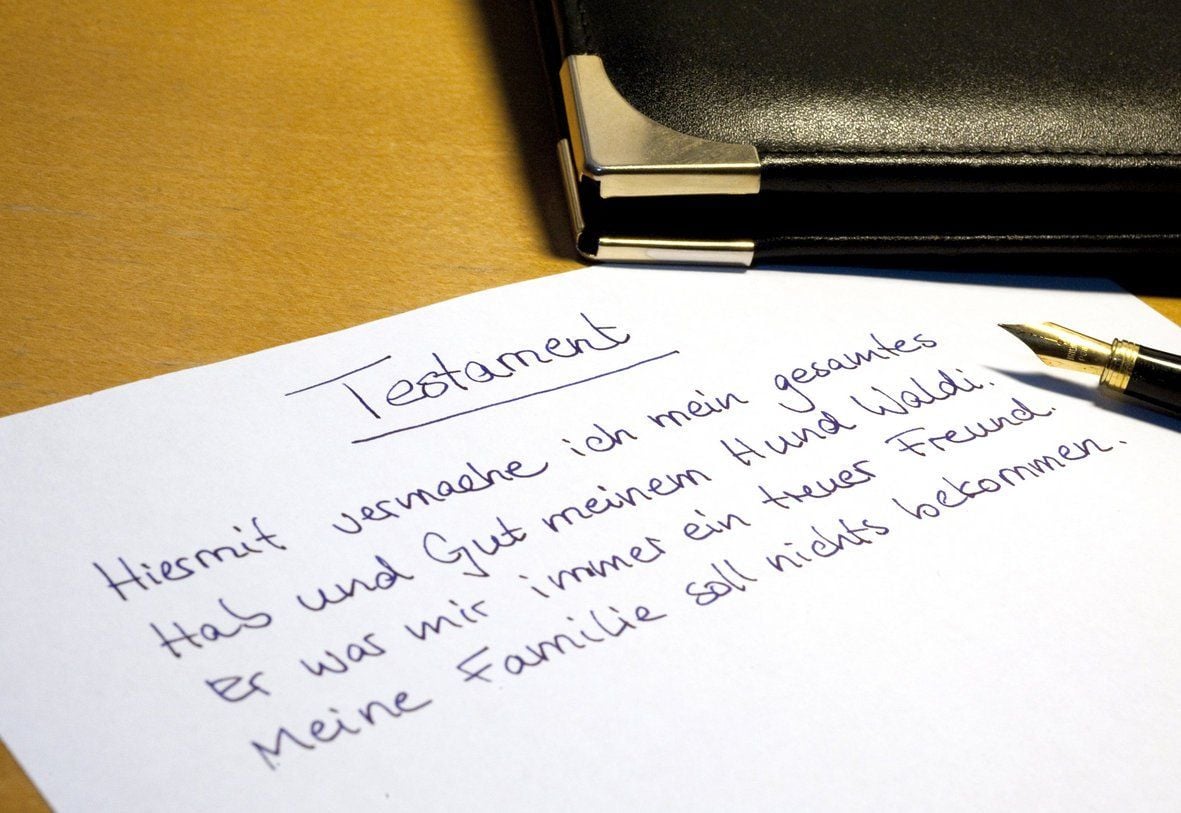 Testament
Hiermit vermache ich mein gesamtes
Hab und Gut meinem Hund Waldi.
Er war mir immer ein treuer Freund.
Meine Familie soll nichts bekommen.